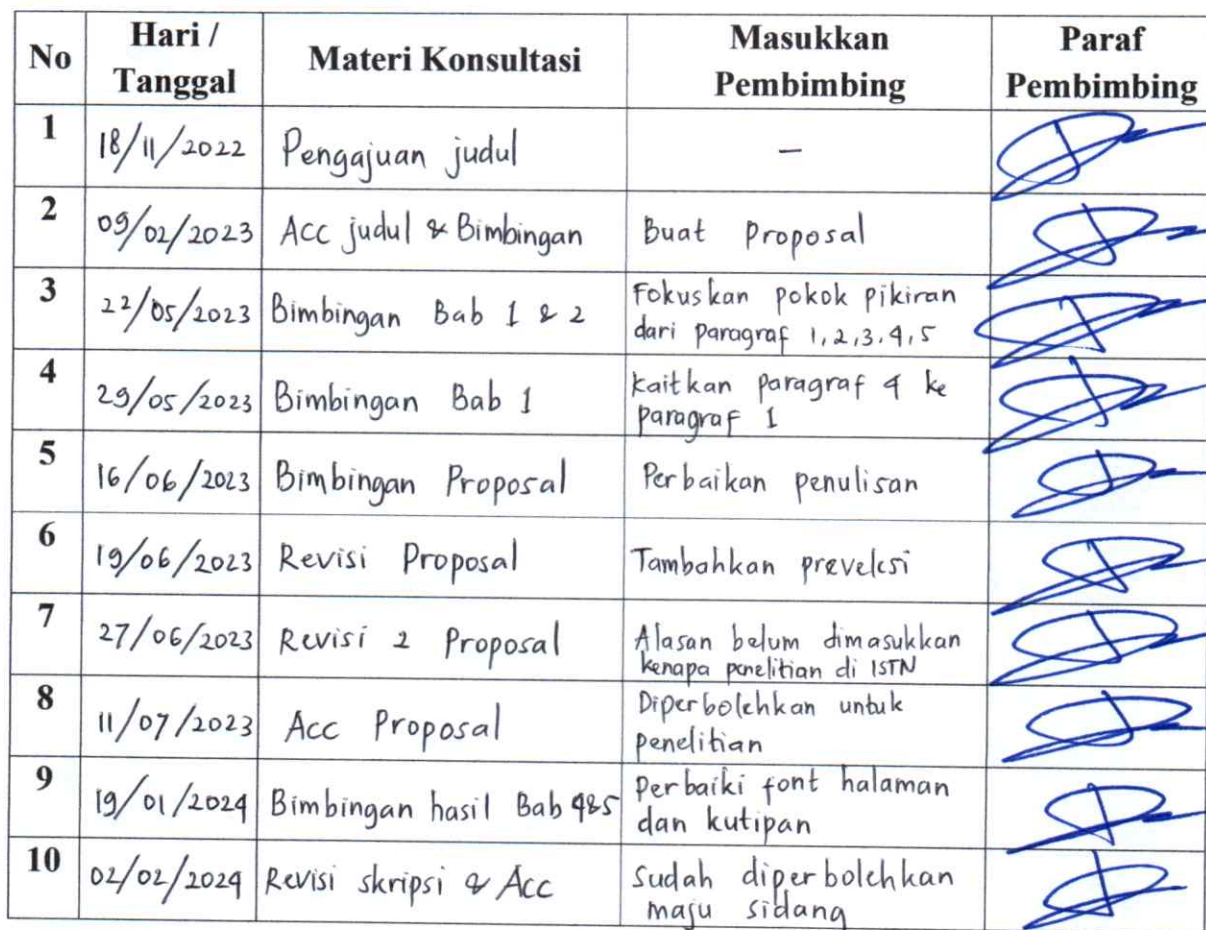 No Hari / Tanggal Materi Konsultasi Masukkan Pembimbing Paraf Pembimbing
1 18/11/2022 Pengajuan judul –
2 09/02/2023 Acc judul & Bimbingan Buat Proposal
3 22/05/2023 Bimbingan Bab 1 & 2 Fokuskan pokok pikiran
dari paragraf 1,2,3,4,5
4 29/05/2023 Bimbingan Bab 1 Kaitkan paragraf 4 ke
paragraf 1
5 16/06/2023 Bimbingan Proposal Perbaikan penulisan
6 19/06/2023 Revisi Proposal Tambahkan prevelesi
7 27/06/2023 Revisi 2 Proposal Alasan belum dimasukkan
kenapa penelitian di ISTN
8 11/07/2023 Acc Proposal Diperbolehkan untuk
penelitian
9 19/01/2024 Bimbingan hasil Bab 4&5 Perbaiki font halaman
dan kutipan
10 02/02/2024 Revisi skripsi & Acc Sudah diperbolehkan
maju sidang